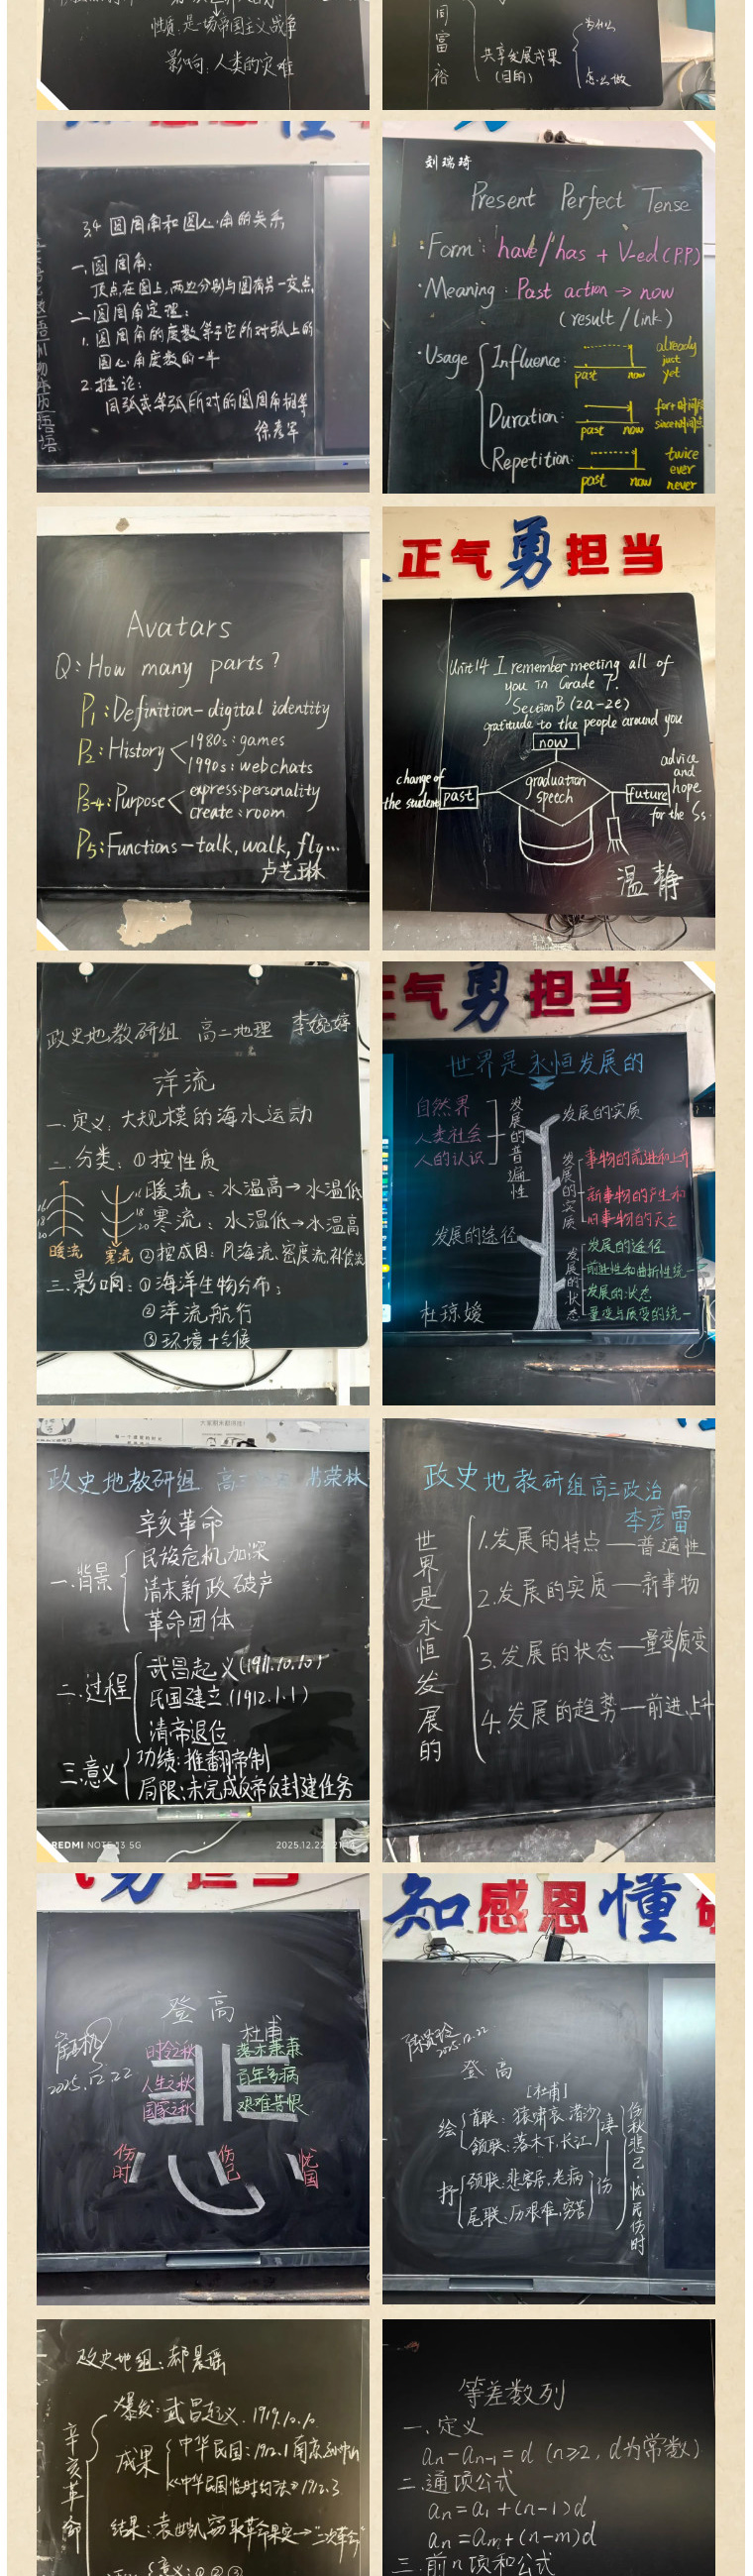 性质:是一场帝国主义战争
影响:人类的灾难
同
富
裕
共享发展成果
(目的)
怎么做
3.4 圆周角和圆心角的关系
一.圆周角:
顶点在圆上,两边分别与圆有另一交点.
二.圆周角定理:
1. 圆周角的度数等于它所对弧上的
圆心角度数的一半
2.推论:
同弧或等弧所对的圆周角相等
徐彦军
刘瑞琦
Present Perfect Tense
·Form: have/has + V-ed(P.P)
·Meaning: Past action → now
(result/link)
·Usage
Influence:
past now
already
just
yet
Duration:
past now
for+时间段
since+时间点
Repetition:
past now
twice
ever
never
Avatars
Q: How many parts?
P1: Definition-digital identity
P2: History
1980s: games
1990s: webchats
P3-4: Purpose
express: personality
create: room
P5: Functions-talk, walk, fly...
卢艺琳
正气勇担当
Unit 14 I remember meeting all of
you in Grade 7.
Section B (2a-2e)
gratitude to the people around you
now
change of
the student
past
graduation
speech
future
advice
and
hope
for the Ss
温静
政史地教研组 高二地理 李婉婷
洋流
一.定义:大规模的海水运动
二.分类:①按性质
暖流:水温高→水温低
寒流:水温低→水温高
16
18
20
16
18
20
暖流 寒流
②按成因:风海流、密度流、补偿流
三.影响:①海洋生物分布;
②洋流航行
③环境+气候
正气勇担当
世界是永恒发展的
自然界
人类社会
人的认识
发展的普遍性
发展的实质
发展的实质
事物的前进和上升
新事物的产生和
旧事物的灭亡
发展的途径
发展的状态
发展的途径
前进性和曲折性统一
发展的状态
量变与质变的统一
杜琼媛
政史地教研组 高三
辛亥革命
一.背景
民族危机加深
清末新政破产
革命团体
二.过程
武昌起义(1911.10.10)
民国建立(1912.1.1)
清帝退位
三.意义
功绩:推翻帝制
局限:未完成反帝反封建任务
REDMI NOTE 13 5G
2025.12.22
政史地教研组高三政治
李彦雷
世界是永恒发展的
1.发展的特点—普遍性
2.发展的实质—新事物
3.发展的状态—量变/质变
4.发展的趋势—前进、上升
气勇担当
登高
杜甫
2025.12.22
时令之秋
人生之秋
国家之秋
落木萧萧
百年多病
艰难苦恨
伤时
伤己
忧国
知感恩懂
2025.12.22
登高
[杜甫]
绘
首联:猿啸哀,渚沙
颔联:落木下,长江
凄
抒
颈联:悲客居,老病
尾联:历艰难,穷苦
伤
伤秋悲己·忧民伤时
政史地组:郝晨瑶
辛亥革命
爆发:武昌起义.1919.10.10
成果
中华民国:1912.1南京,孙中山
《中华民国临时约法》1912.3
结果:袁世凯窃取革命果实→"二次革命"
意义:①②③
等差数列
一.定义
an-an-1=d (n≥2, d为常数)
二.通项公式
an=a1+(n-1)d
an=am+(n-m)d
三.前n项和公式